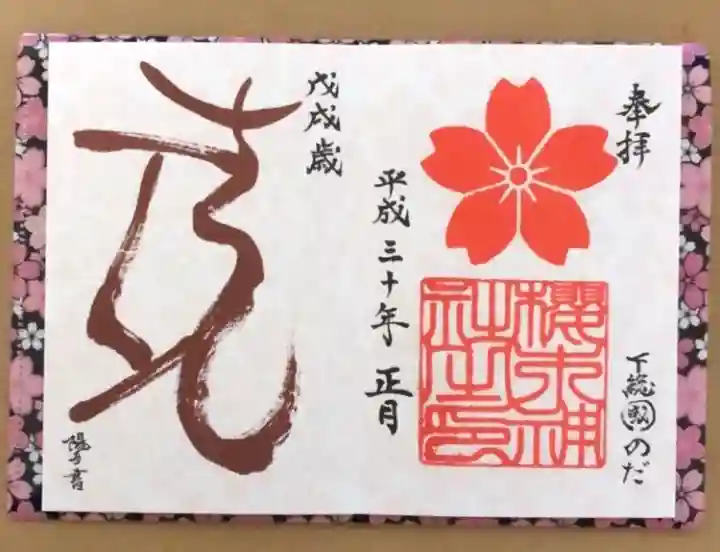 奉拝
下総國のだ
櫻木神社之印
平成三十年 正月
戊戌歳
陽子書